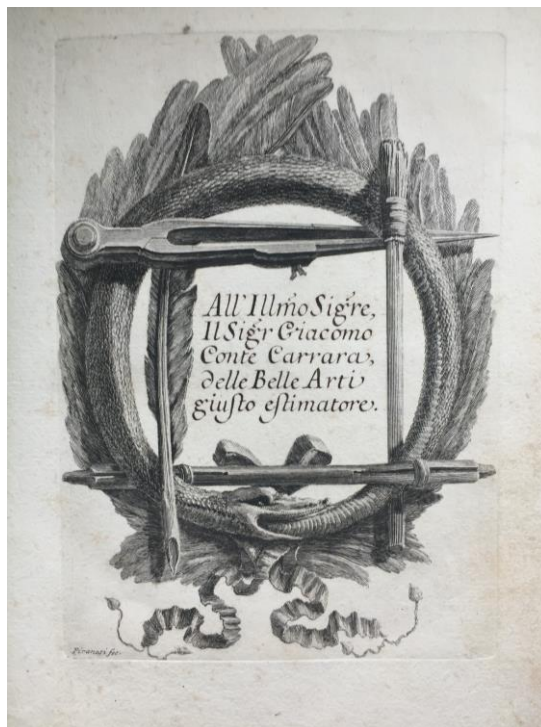 All'Illm̃o Sigr̃e,
Il Sigr̃ Giacomo
Conte Carrara,
delle Belle Arti
giuſto eſtimatore.
Piranesi fec.